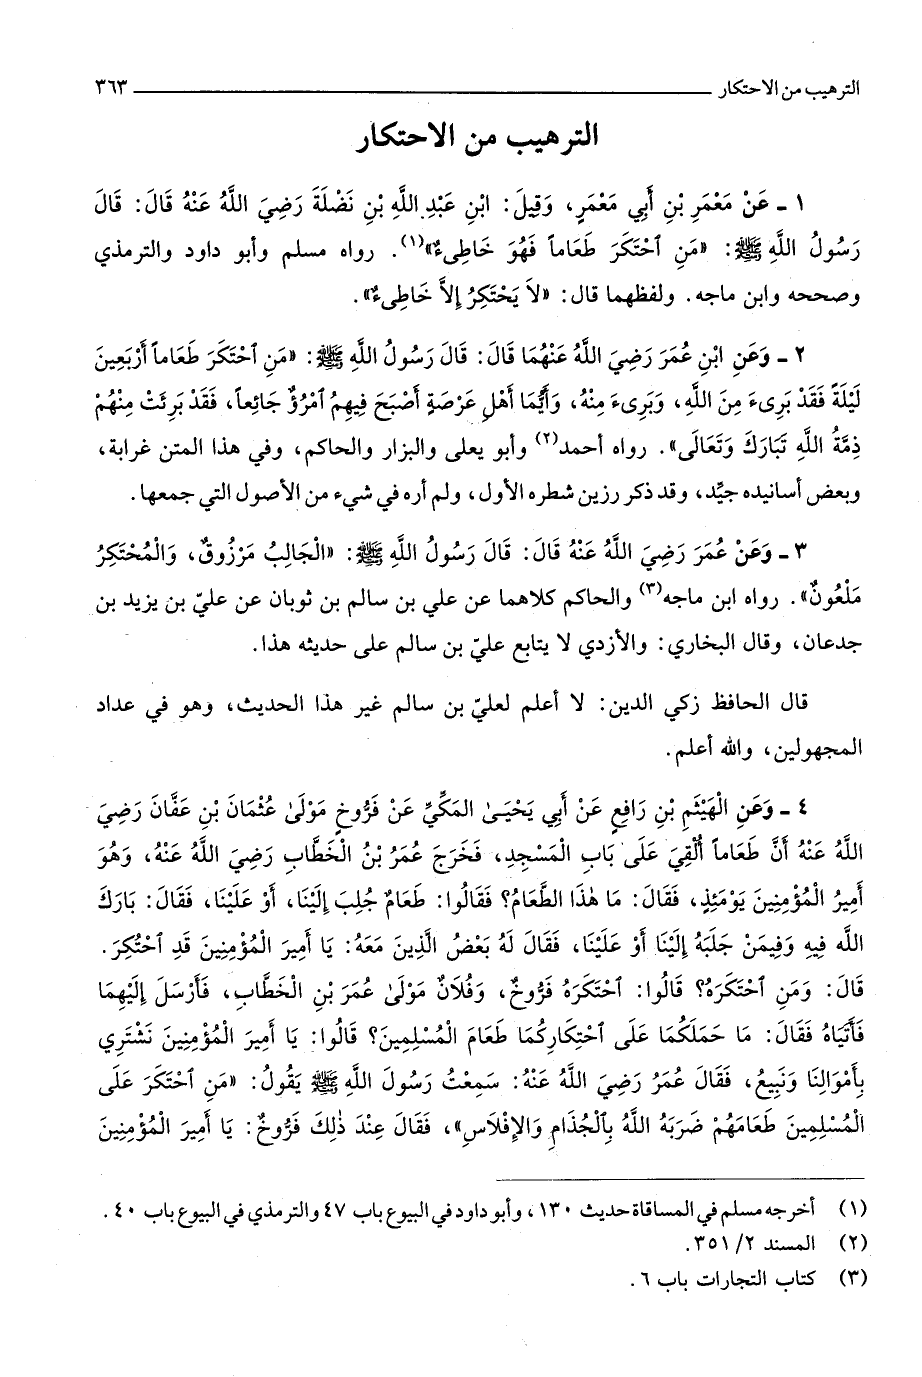 الترهيب من الاحتكار ٣٦٣
الترهيب من الاحتكار
١ ـ عَنْ مَعْمَرِ بْنِ أَبِي مَعْمَرٍ، وَقِيلَ: ابْنِ عَبْدِ اللَّهِ بْنِ نَضْلَةَ رَضِيَ اللَّهُ عَنْهُ قَالَ: قَالَ
رَسُولُ اللَّهِ ﷺ: «مَنِ ٱحْتَكَرَ طَعَاماً فَهُوَ خَاطِىءٌ»(١). رواه مسلم وأبو داود والترمذي
وصححه وابن ماجه. ولفظهما قال: «لاَ يَحْتَكِرُ إِلاَّ خَاطِىءٌ».
٢ ـ وَعَنِ ابْنِ عُمَرَ رَضِيَ اللَّهُ عَنْهُمَا قَالَ: قَالَ رَسُولُ اللَّهِ ﷺ: «مَنِ ٱحْتَكَرَ طَعَاماً أَرْبَعِينَ
لَيْلَةً فَقَدْ بَرِىءَ مِنَ اللَّهِ، وَبَرِىءَ مِنْهُ، وَأَيُّمَا أَهْلِ عَرْصَةٍ أَصْبَحَ فِيهِمُ ٱمْرُؤٌ جَائِعاً، فَقَدْ بَرِئَتْ مِنْهُمْ
ذِمَّةُ اللَّهِ تَبَارَكَ وَتَعَالَى». رواه أحمد(٢) وأبو يعلى والبزار والحاكم، وفي هذا المتن غرابة،
وبعض أسانيده جيِّد، وقد ذكر رزين شطره الأول، ولم أره في شيء من الأصول التي جمعها.
٣ ـ وَعَنْ عُمَرَ رَضِيَ اللَّهُ عَنْهُ قَالَ: قَالَ رَسُولُ اللَّهِ ﷺ: «الْجَالِبُ مَرْزُوقٌ، وَالْمُحْتَكِرُ
مَلْعُونٌ». رواه ابن ماجه(٣) والحاكم كلاهما عن علي بن سالم بن ثوبان عن عليّ بن يزيد بن
جدعان، وقال البخاري: والأزدي لا يتابع عليّ بن سالم على حديثه هذا.
قال الحافظ زكي الدين: لا أعلم لعليّ بن سالم غير هذا الحديث، وهو في عداد
المجهولين، والله أعلم.
٤ ـ وَعَنِ الْهَيْثَمِ بْنِ رَافِعٍ عَنْ أَبِي يَحْيَىٰ المَكِّيِّ عَنْ فَرُّوخٍ مَوْلَىٰ عُثْمَانَ بْنِ عَفَّانَ رَضِيَ
اللَّهُ عَنْهُ أَنَّ طَعَاماً أُلْقِيَ عَلَى بَابِ الْمَسْجِدِ، فَخَرَجَ عُمَرُ بْنُ الْخَطَّابِ رَضِيَ اللَّهُ عَنْهُ، وَهُوَ
أَمِيرُ الْمُؤْمِنِينَ يَوْمَئِذٍ، فَقَالَ: مَا هٰذَا الطَّعَامُ؟ فَقَالُوا: طَعَامٌ جُلِبَ إِلَيْنَا، أَوْ عَلَيْنَا، فَقَالَ: بَارَكَ
اللَّه فِيهِ وَفِيمَنْ جَلَبَهُ إِلَيْنَا أَوْ عَلَيْنَا، فَقَالَ لَهُ بَعْضُ الَّذِينَ مَعَهُ: يَا أَمِيرَ الْمُؤْمِنِينَ قَدِ ٱحْتُكِرَ.
قَالَ: وَمَنِ ٱحْتَكَرَهُ؟ قَالُوا: ٱحْتَكَرَهُ فَرُّوخٌ، وَفُلَانٌ مَوْلَىٰ عُمَرَ بْنِ الْخَطَّابِ، فَأَرْسَلَ إِلَيْهِمَا
فَأَتَيَاهُ فَقَالَ: مَا حَمَلَكُمَا عَلَى ٱحْتِكَارِكُمَا طَعَامَ الْمُسْلِمِينَ؟ قَالُوا: يَا أَمِيرَ الْمُؤْمِنِينَ نَشْتَرِي
بِأَمْوَالِنَا وَنَبِيعُ، فَقَالَ عُمَرُ رَضِيَ اللَّهُ عَنْهُ: سَمِعْتُ رَسُولَ اللَّهِ ﷺ يَقُولُ: «مَنِ ٱحْتَكَرَ عَلَى
الْمُسْلِمِينَ طَعَامَهُمْ ضَرَبَهُ اللَّهُ بِٱلْجُذَامِ وَالإِفْلَاسِ»، فَقَالَ عِنْدَ ذٰلِكَ فَرُّوخٌ: يَا أَمِيرَ الْمُؤْمِنِينَ
(١) أخرجه مسلم في المساقاة حديث ١٣٠، وأبو داود في البيوع باب ٤٧ والترمذي في البيوع باب ٤٠.
(٢) المسند ٢/ ٣٥١.
(٣) كتاب التجارات باب ٦.